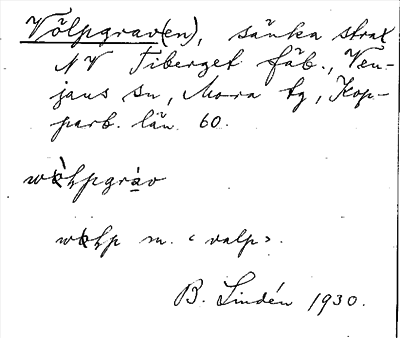 Völpgrav(en), sänka strax
NV Tiberget fäb., Ven-
jans sn, Mora tg, Kop-
parb. län. 60.
m. ‹ valp ›.
B. Lindén 1930.